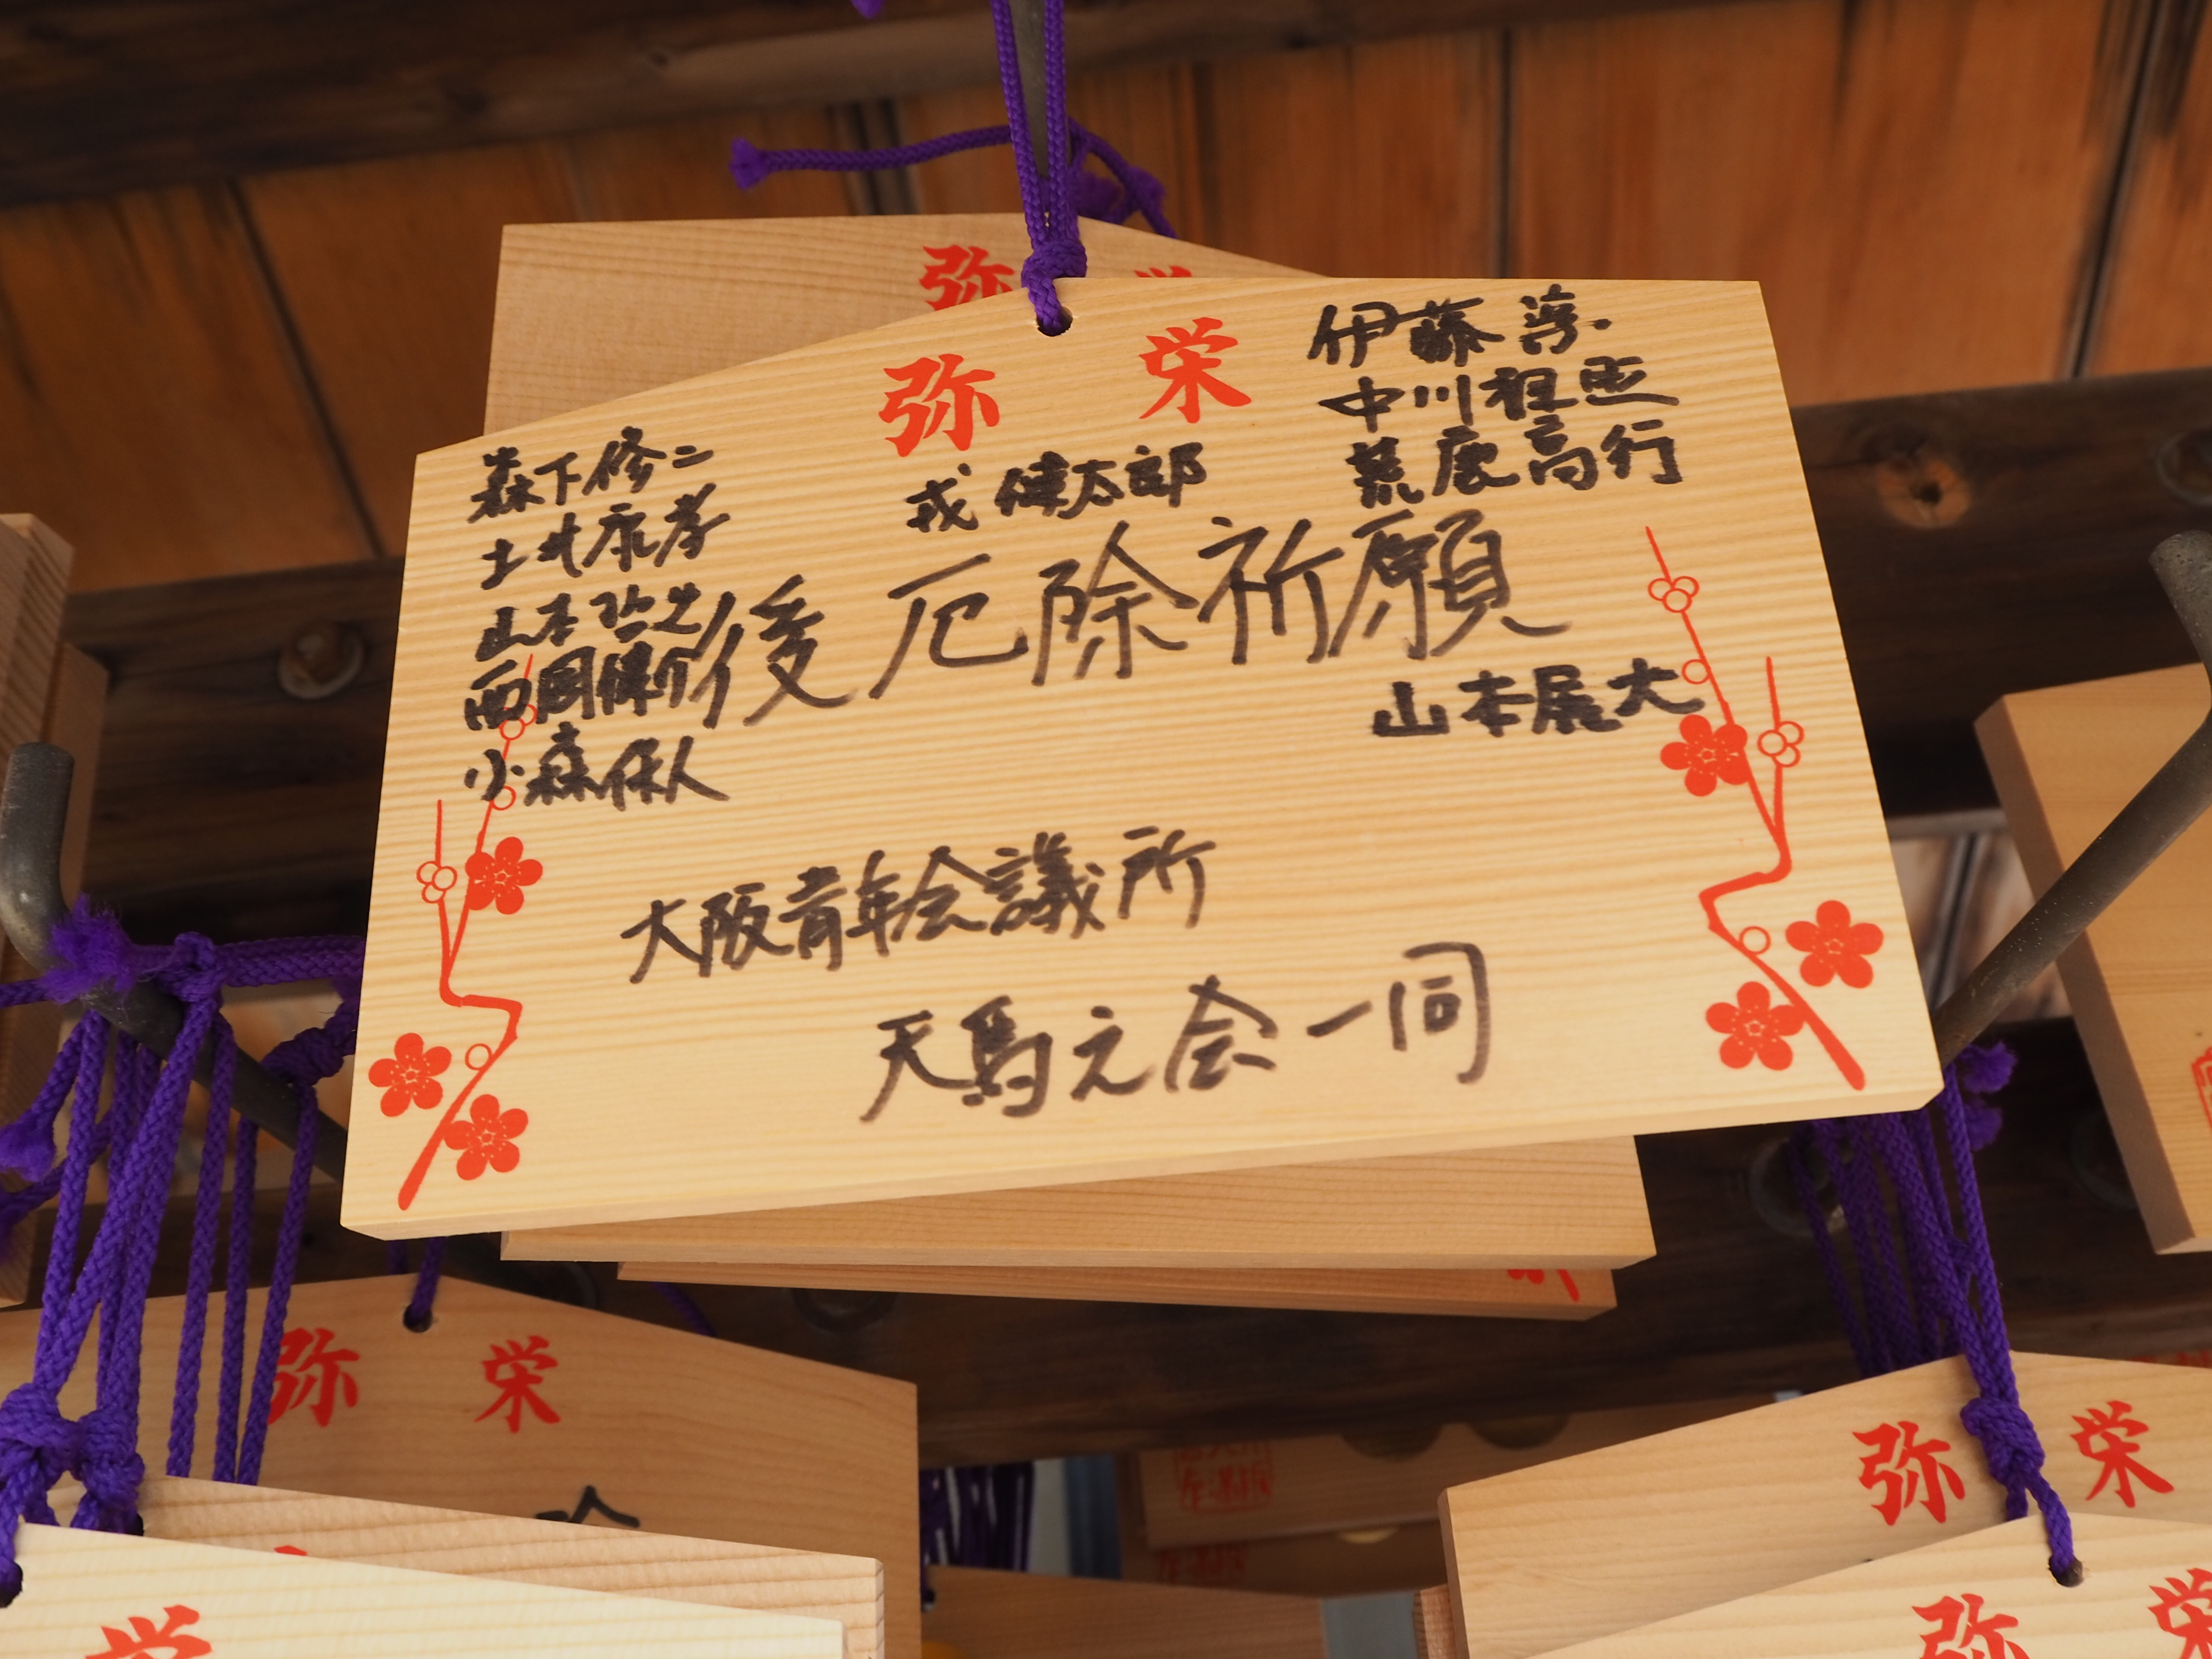 弥栄
伊藤淳
中川
荒鹿高行
戎健太郎
森下修二
土井康孝
山本
西岡
小森保人
後厄除祈願
山本展大
大阪青年会議所
天馬之会一同
弥栄
弥栄
弥栄
栄
弥